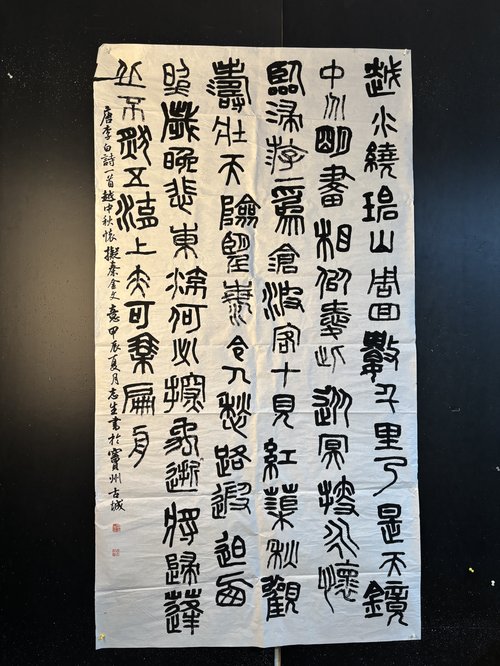 越水繞碧山周回數千里乃是天鏡
中分明畫相似愛此從冥搜永懷
臨湍游一爲滄波客十見紅蕖秋觀
濤壯天險望海令人愁路遐迫西
照歲晚悲東流何必探禹逝將歸蓬
丘不然五湖上亦可乘扁舟
唐李白詩一首越中秋懷擬秦金文意甲辰夏月志生書於竇州古城